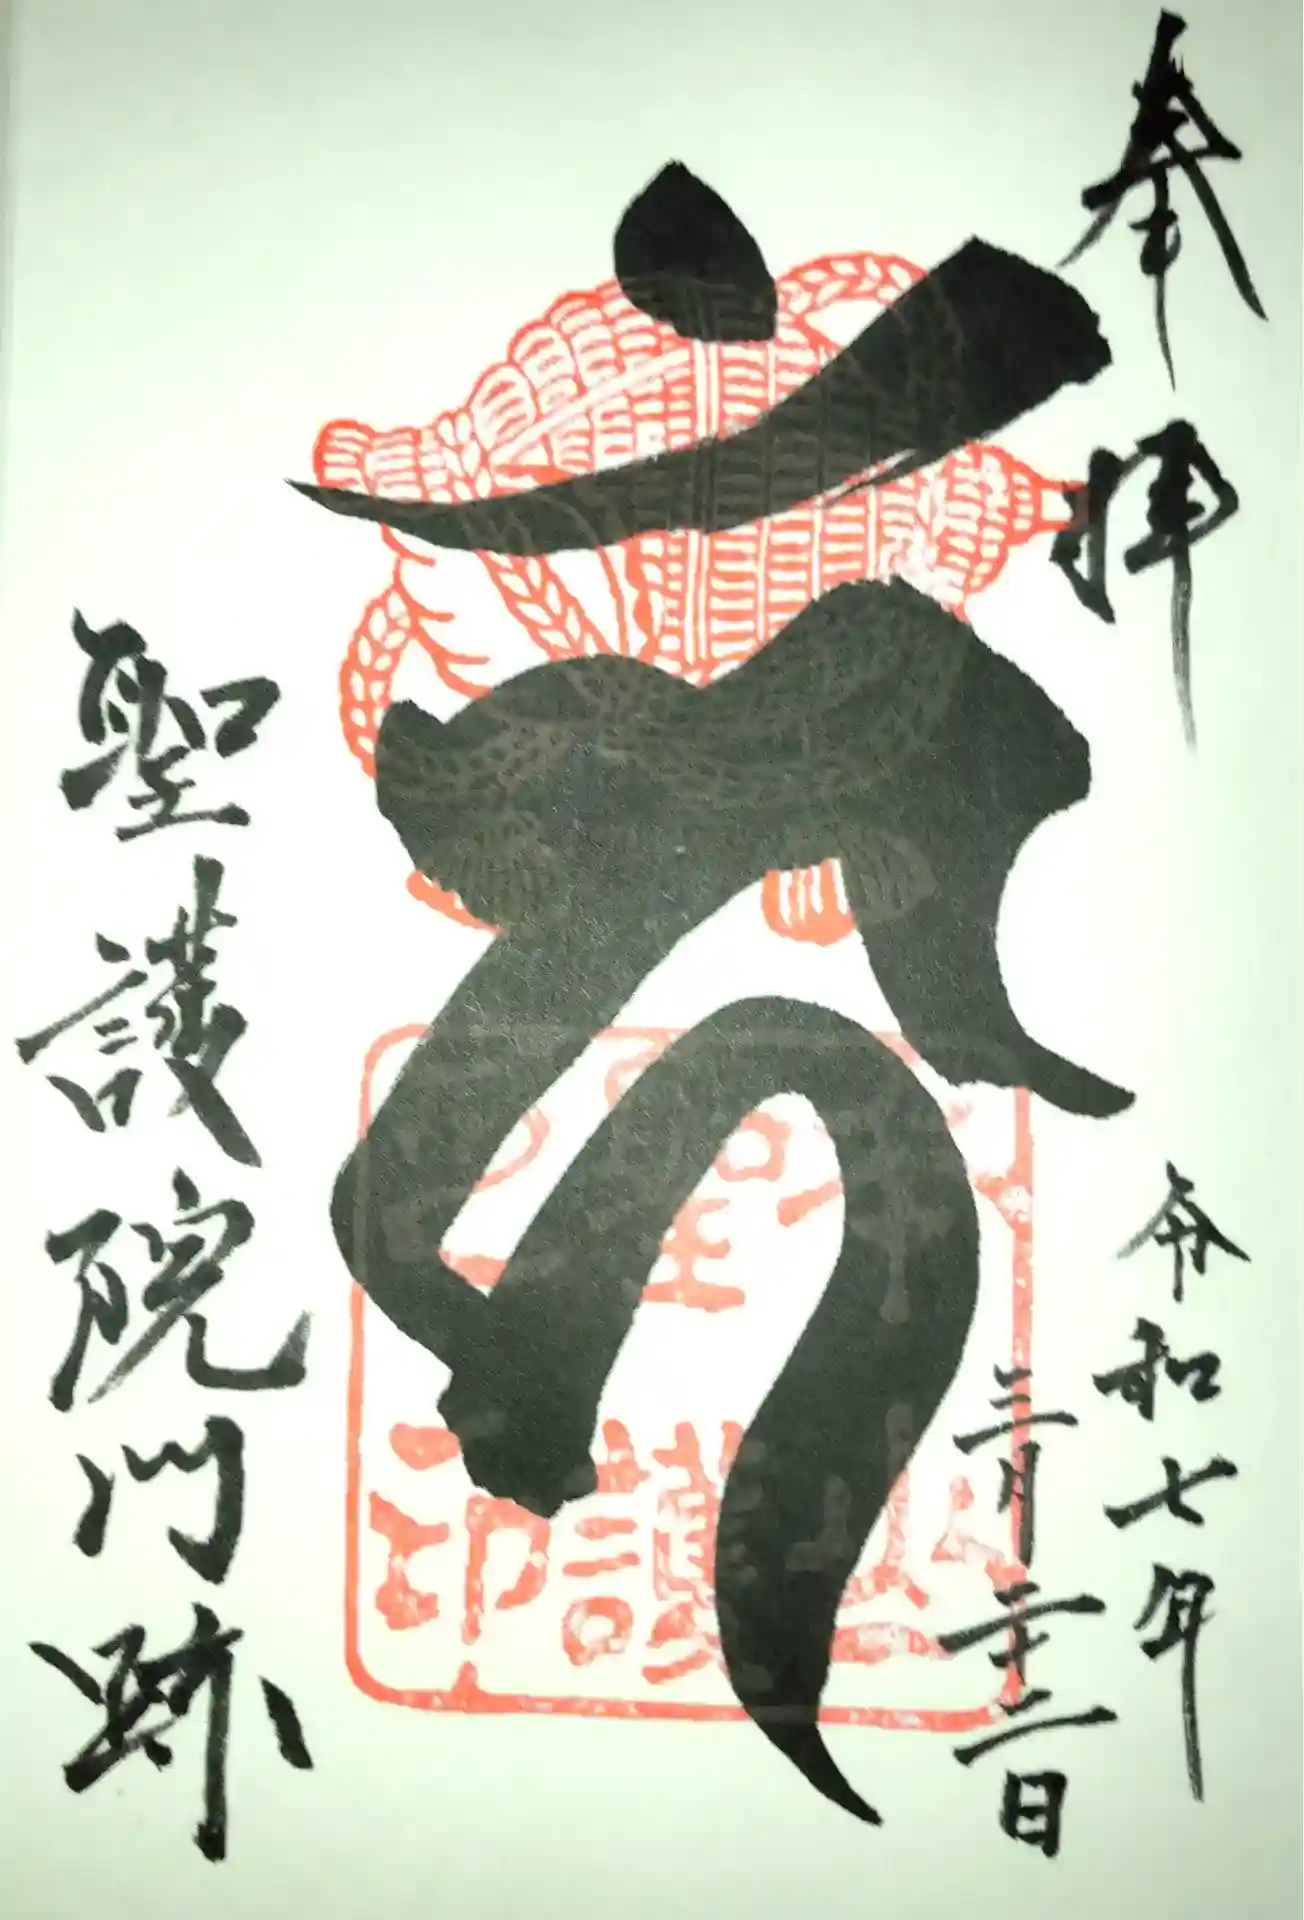 奉拝
令和七年
三月二十二日
聖護
印
聖護院門跡